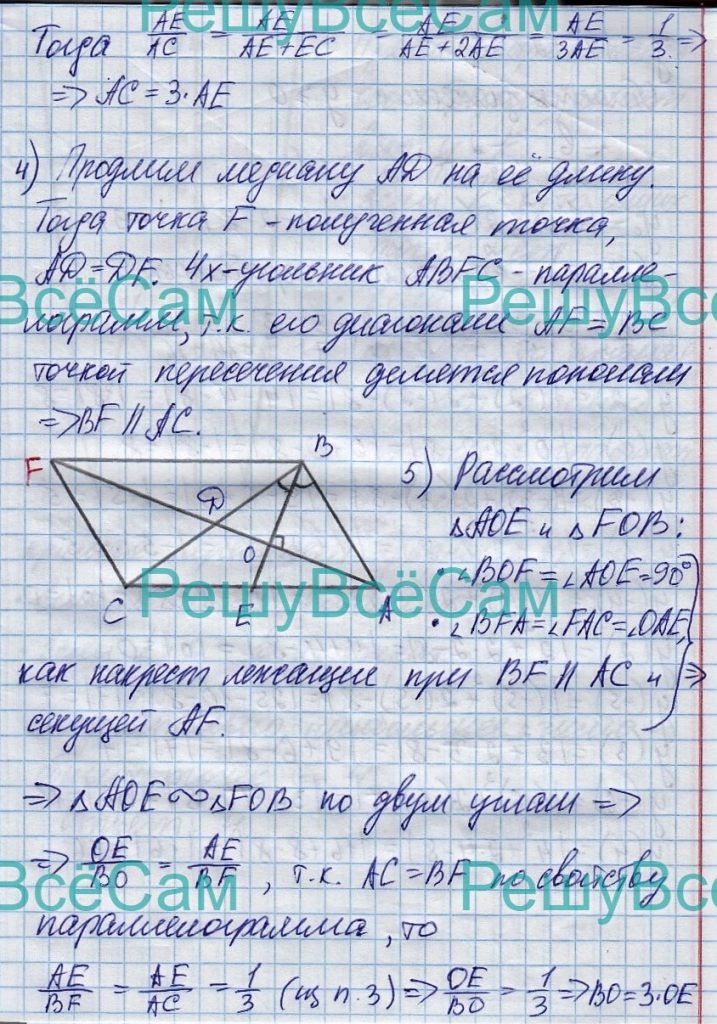 РешуВсёСам
Тогда AE/AC = AE/AE+EC = AE/AE+2AE = AE/3AE = 1/3. =>
=> AC = 3·AE
4) Продлим медиану AD на её длину.
Тогда точка F - полученная точка,
AD=DF. 4х-угольник ABFC - паралле-
ВсёСам РешуВсё
лограмм, т.к. его диагонали AF = BC
точкой пересечения делятся пополам
=> BF || AC.
F B
D
O
C E A
5) Рассмотрим
△AOE и △FOB:
· ∠BOF = ∠AOE = 90°
РешуВсёСам
· ∠BFA = ∠FAC = ∠OAE,
как накрест лежащие при BF || AC и =>
секущей AF.
=> △AOE ∾ △FOB по двум углам =>
=> OE/BO = AE/BF, т.к. AC = BF по свойству
ВсёСам РешуВсё
параллелограмма, то
AE/BF = AE/AC = 1/3 (из п.3) => OE/BO = 1/3 => BO = 3·OE